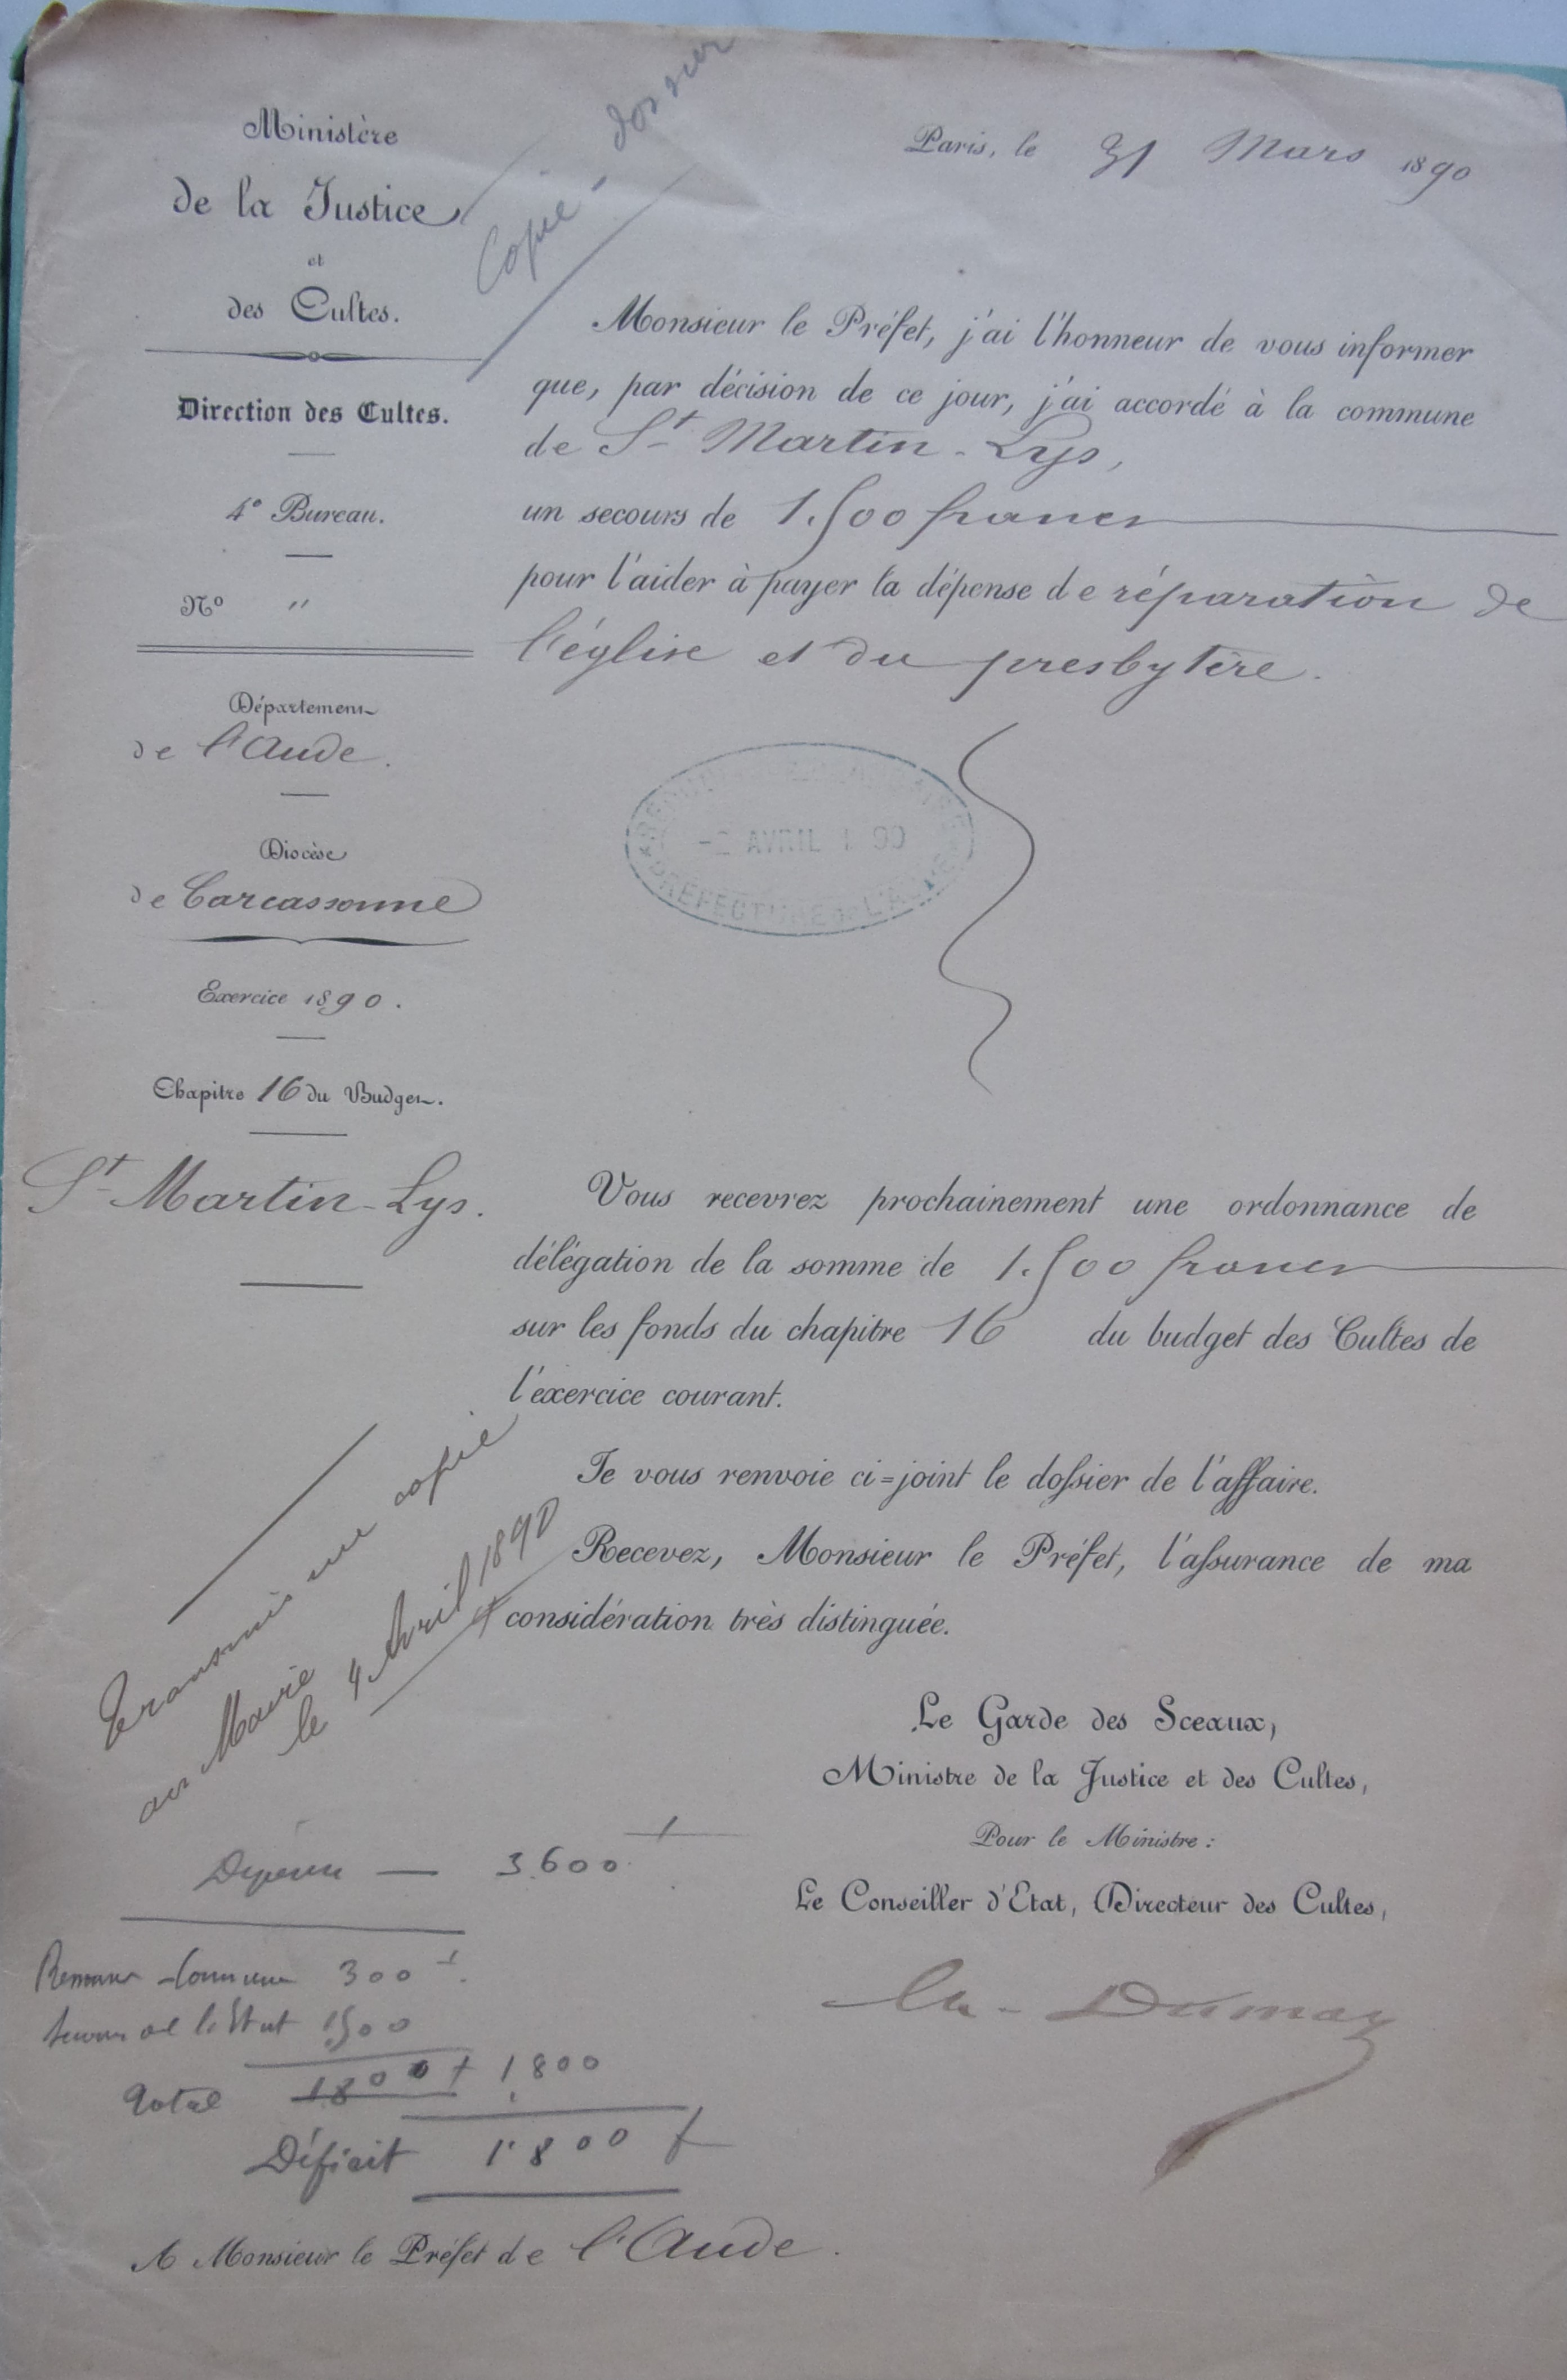 Copié - dossier
Ministère
de la Justice
et
des Cultes.
Direction des Cultes.
4e Bureau.
No "
Département
de l'Aude.
Diocèse
de Carcassonne
Exercice 1890.
Chapitre 16 du Budget.
St Martin-Lys.
Paris, le 31 Mars 1890
Monsieur le Préfet, j'ai l'honneur de vous informer
que, par décision de ce jour, j'ai accordé à la commune
de St Martin-Lys,
un secours de 1.500 francs
pour l'aider à payer la dépense de réparation de
l'église et du presbytère.
-2 AVRIL 1 90
PRÉFECTURE DE L'AUDE
Vous recevrez prochainement une ordonnance de
délégation de la somme de 1.500 francs
sur les fonds du chapitre 16 du budget des Cultes de
l'exercice courant.
Je vous renvoie ci=joint le dossier de l'affaire.
Recevez, Monsieur le Préfet, l'assurance de ma
considération très distinguée.
Transmis une copie
au Maire
le 4 Avril 1890
Le Garde des Sceaux,
Ministre de la Justice et des Cultes,
Pour le Ministre :
Le Conseiller d'Etat, Directeur des Cultes,
Ch. Dumay
Dépense — 3.600
Commune 300 f.
Secours de l'Etat 1500
Total 1800 f 1,800
Déficit 1.800 f
A Monsieur le Préfet de l'Aude.